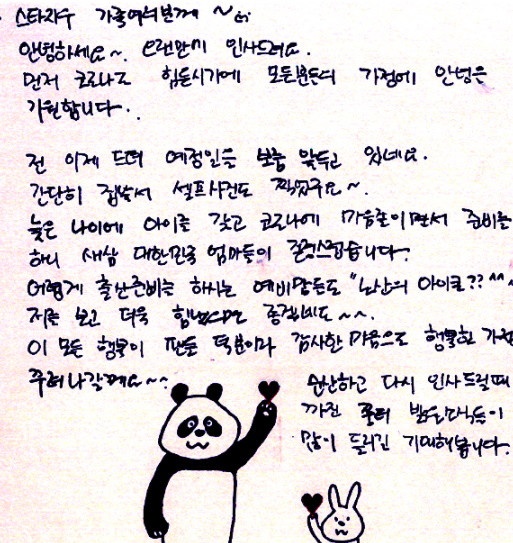 스타자수 가족여러분께 ~
안녕하세요~. 오랜만에 인사드려요.
먼저 코로나로 힘든시기에 모든분들의 가정에 안녕을
기원합니다.
전 이제 드뎌 예정일을 보름 앞두고 있네요.
간단히 집에서 셀프사진도 찍었구요~.
늦은 나이에 아이를 갖고 코로나에 마음졸이면서 준비를
하니 새삼 대한민국 엄마들이 존경스럽습니다.
어렵게 출산준비를 하시는 예비맘들도 "노산의 아이콘?? ^^
저를 보고 더욱 힘냈으면 좋겠네요~~.
이 모든 행복이 팬들 덕분이라 감사한 마음으로 행복한 가정
꾸려나갈께요~~
순산하고 다시 인사드릴때
까진 좋은 소식들이
많이 들리길 기대해봅니다.